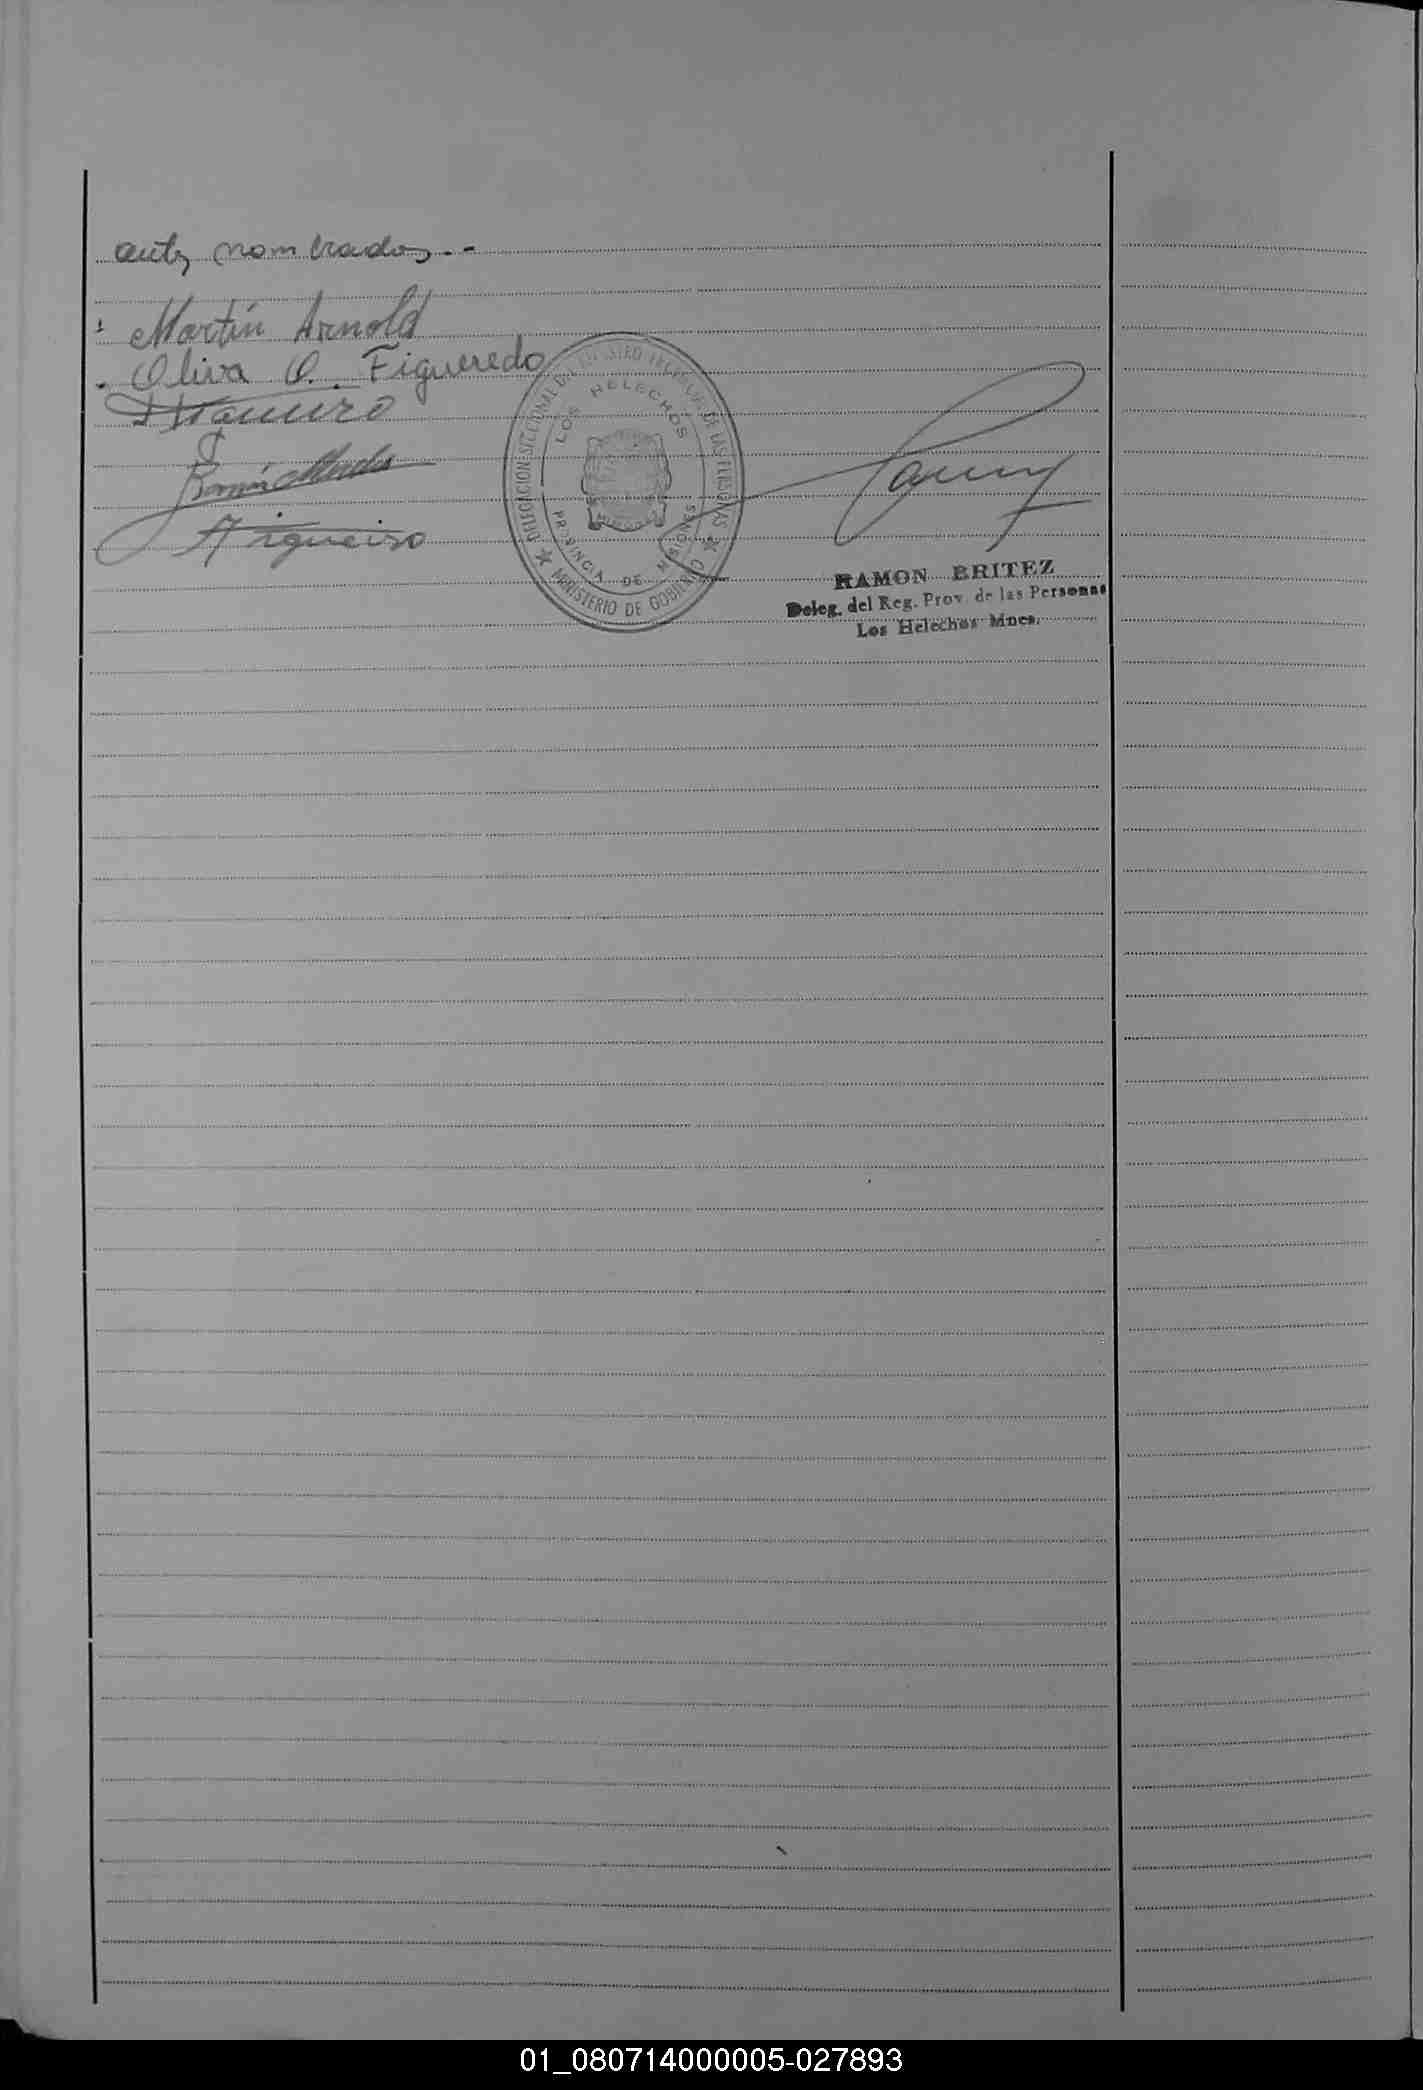 ants nombrados.-
Martín Arnold
Oliva O. Figueredo
DELEGACION SECCIONAL DEL REGISTRO PROVINCIAL DE LAS PERSONAS
LOS HELECHOS
PROVINCIA DE MISIONES
MINISTERIO DE GOBIERNO
RAMON BRITEZ
Deleg. del Reg. Prov. de las Personas
Los Helechos Mnes.
01_080714000005-027893